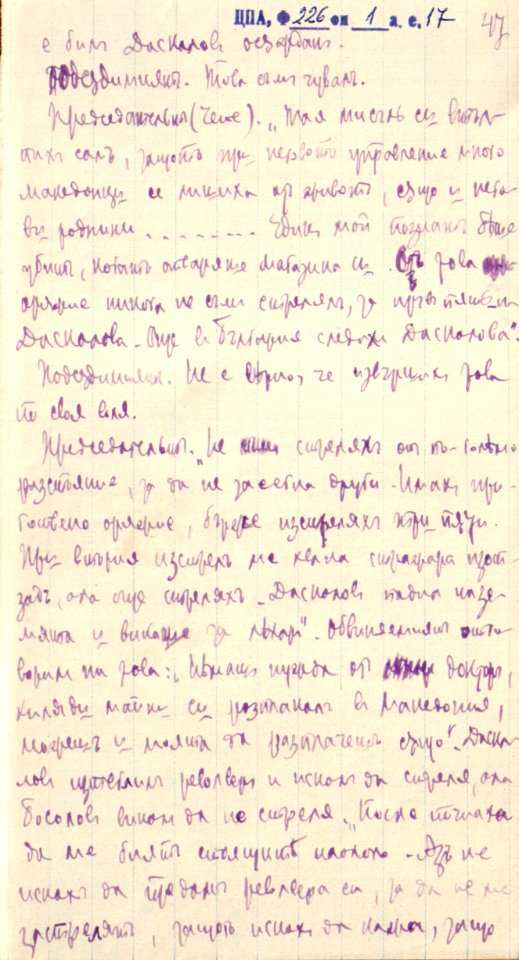 ЦПА, Ф 226 оп 1 а. е. 17
47
е билъ Даскаловъ осѫрбанъ.
Подсѫдимиятъ. Това съмъ чувалъ.
Председательтъ (чете). „Тая мисъль си
самъ, защото при неговото управление много
македонци се лишиха отъ животъ, също и него-
ви роднини . . . . . . . . Единъ мой познатъ бѣше
убитъ, когато отваряше магазина си. Съ това
оръжие никога не съмъ стрелялъ, за пръвъ пѫть
Даскалова. Още въ България следяхъ Даскалова“.
Подсѫдимиятъ. Не е вѣрно, че извършихъ това
по своя воля.
Председательтъ. „Не стреляхъ отъ по-голѣмо
разстояние, за да не засегна други. Имахъ при-
готвено оръжие, бърже изстреляхъ три пѫти.
При втория изстрелъ ме хвана стражара изот-
задъ, ала още стреляхъ. Даскаловъ падна на зе-
мята и викаше за лѣкаръ“. Обвиняемиятъ отго-
ворилъ на това: „Нѣмашъ нужда отъ докторъ,
хиляди майки си разплакалъ въ Македония,
могѫтъ и моята да разплачатъ също“. Даска-
ловъ изтеглилъ револвера и искалъ да стреля, ала
Босоловъ викалъ да не стреля. „После почнаха
да ме биятъ стоящитѣ наоколо. Азъ не
искахъ да предамъ револвера си, за да не ме
застрелятъ, защото искахъ да кажа, защо